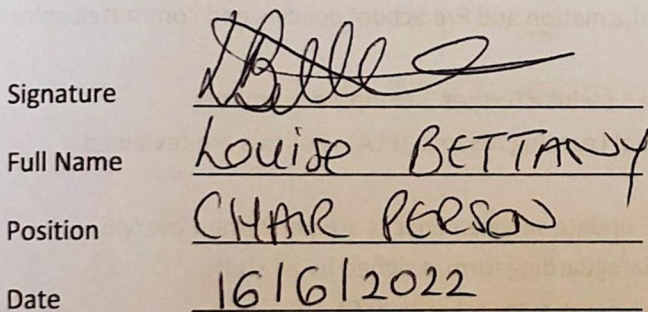 Signature
Full Name Louise BETTANY
Position CHAIR PERSON
Date 16/6/2022